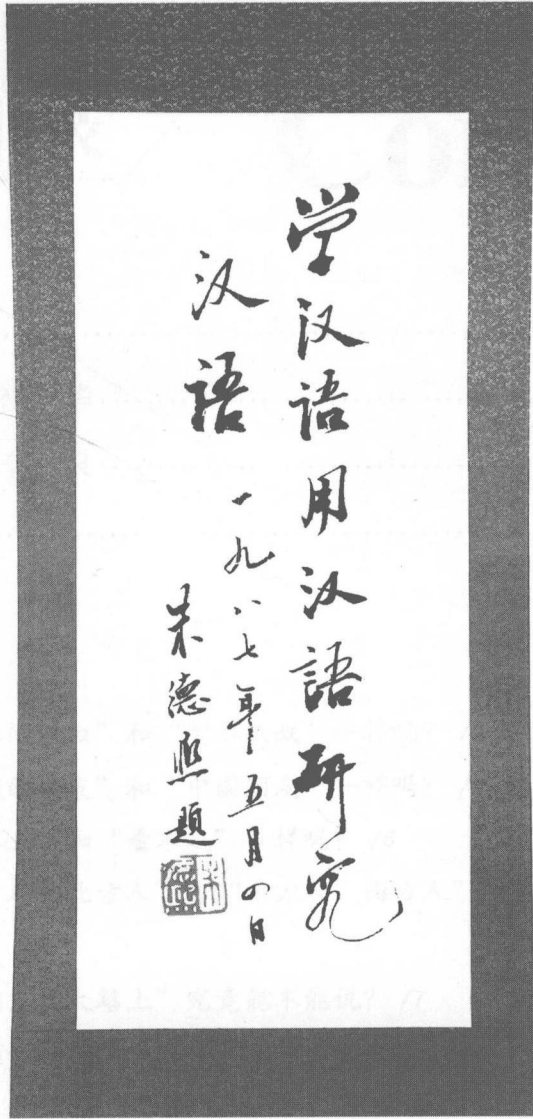 学汉語用汉語研究
汉語
一九八七年五月四日
朱德熙題